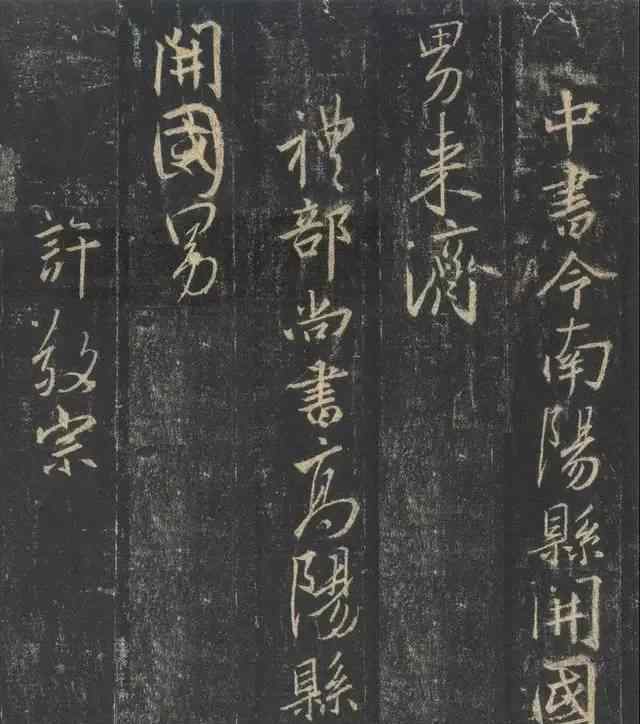 中書令南陽縣開國
男来濟
禮部尚書高陽縣
開國男
許敬宗